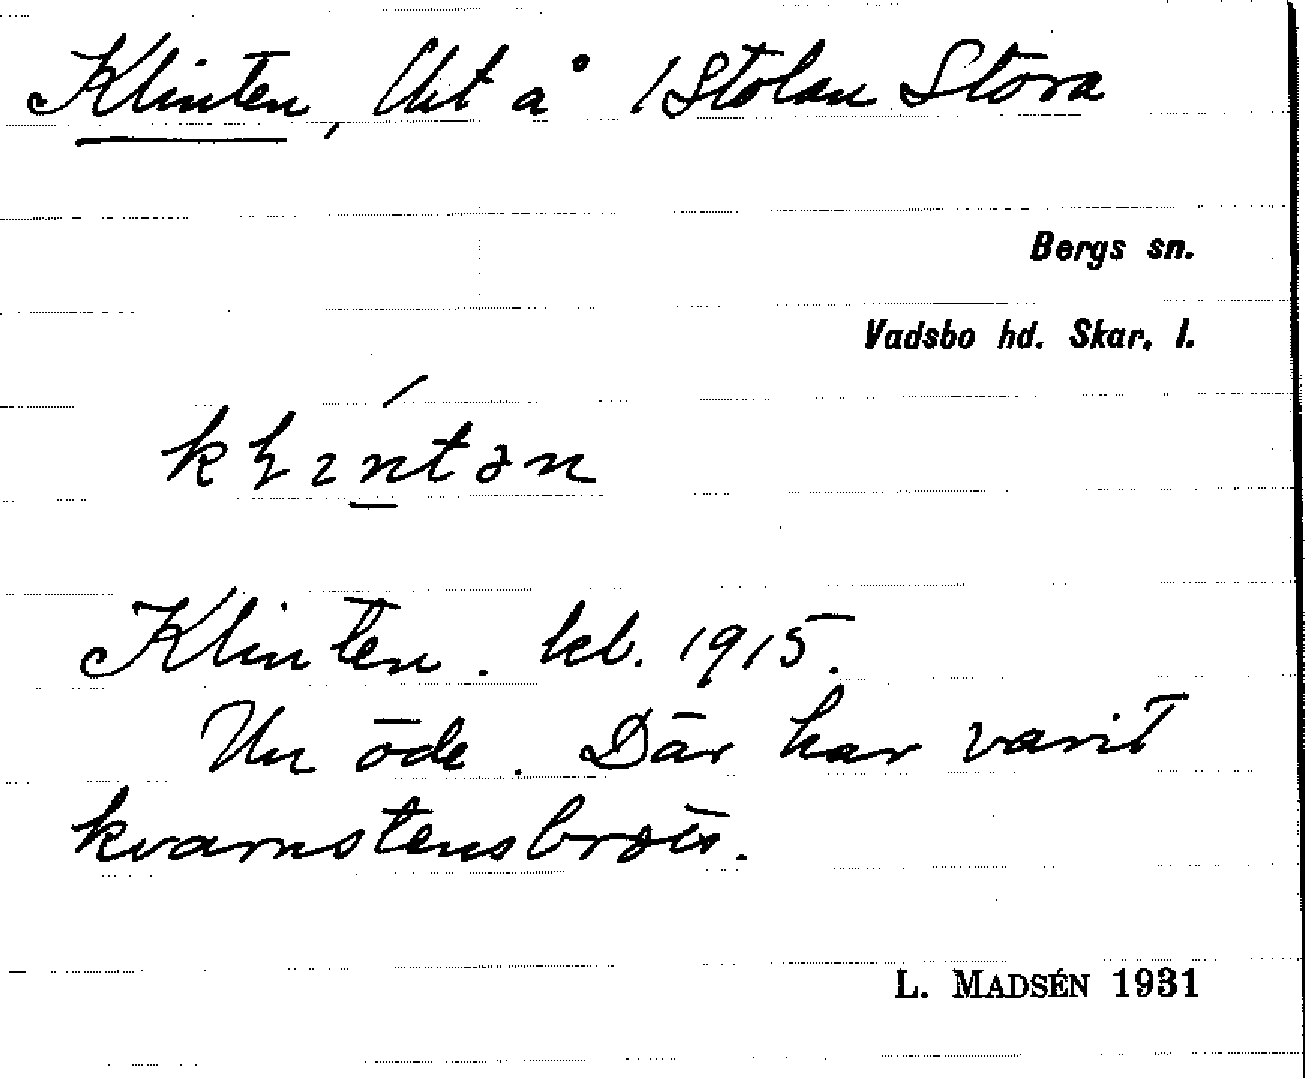 Klinten, Utå /Stolan Stora
Bergs sn.
Vadsbo hd. Skar. l.
Klinten. kb. 1915.
Nu öde. Där har varit
kvarnstensbrott.
L. MADSÉN 1931